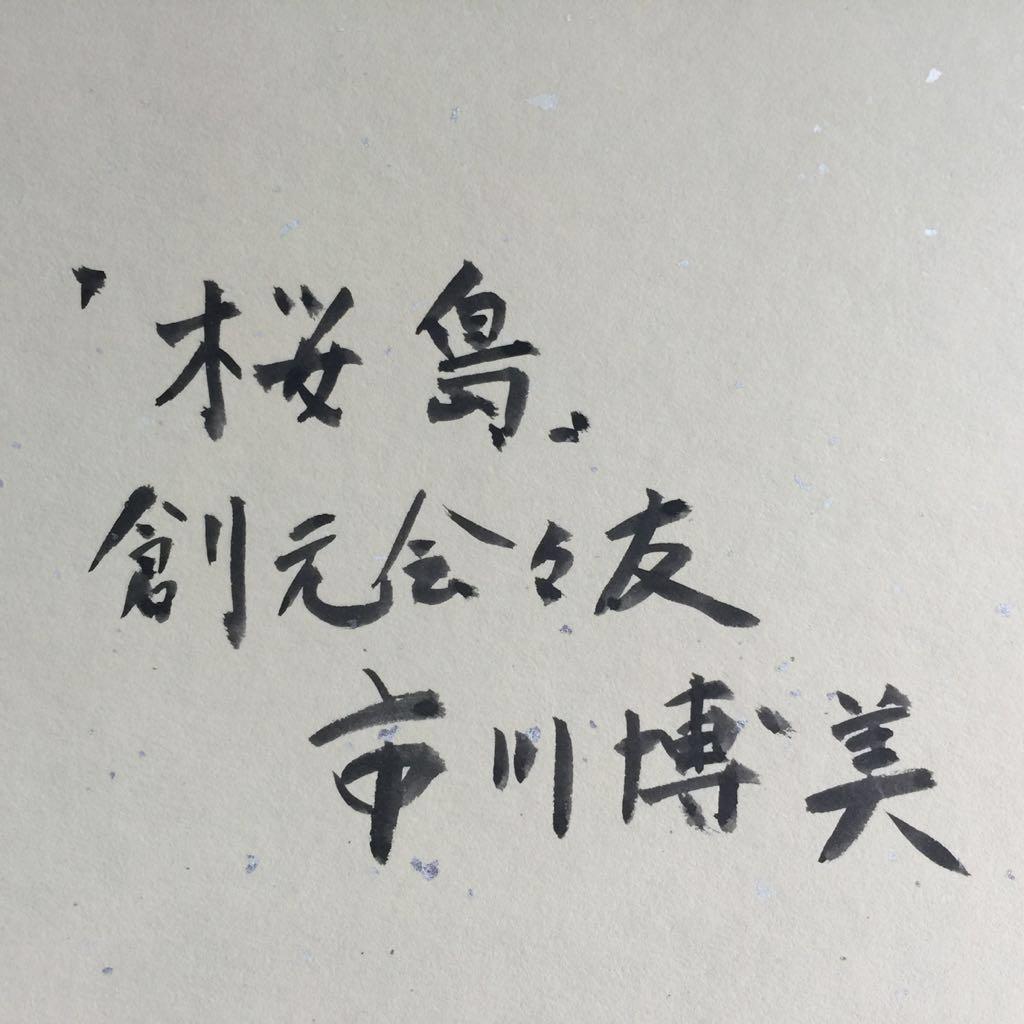 「桜島」
創元会々友
市川博美